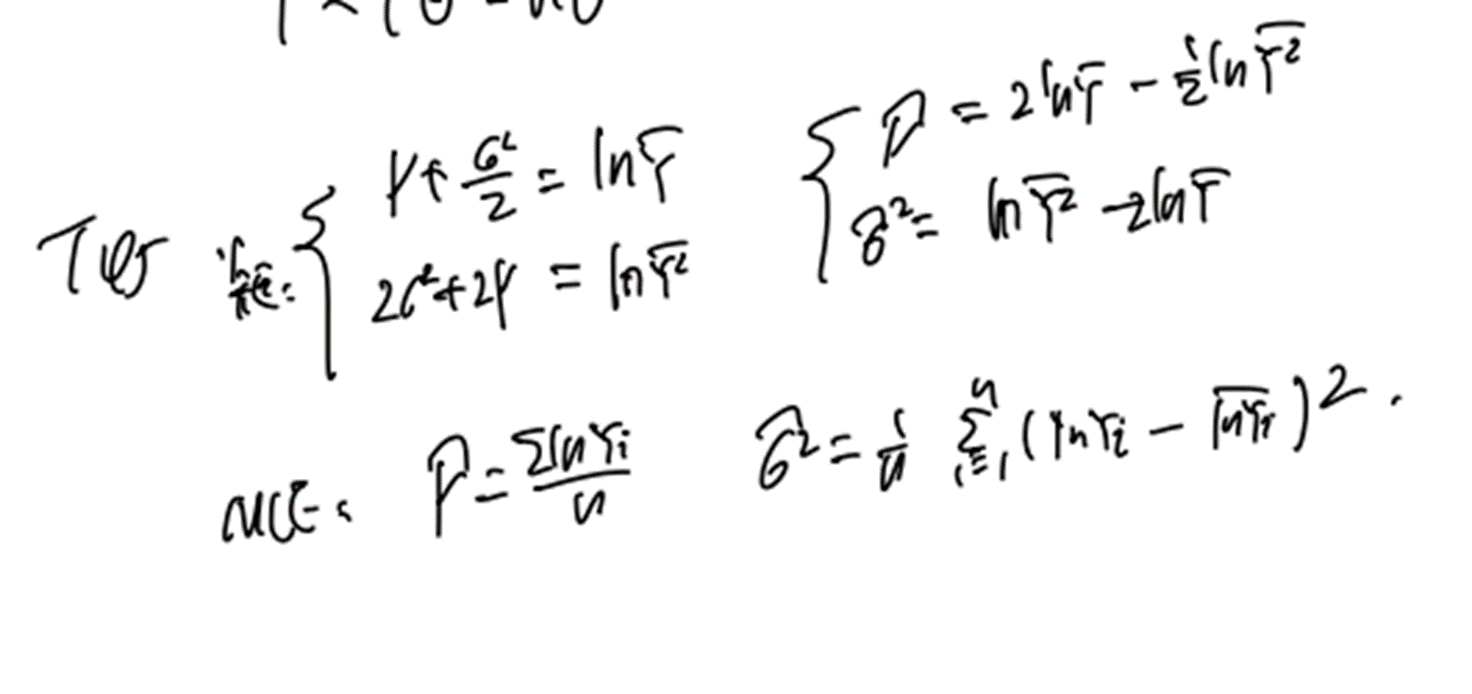 μ + σ²/2 = ln Ȳ
2σ² + 2μ = ln \overline{Y²}
μ̂ = 2 ln Ȳ − ½ ln \overline{Y²}
σ̂² = ln \overline{Y²} − 2 ln Ȳ
MLE: μ̂ = Σ ln Yᵢ / n    σ̂² = 1/n Σᵢ₌₁ⁿ (ln Yᵢ − \overline{ln Yᵢ})².